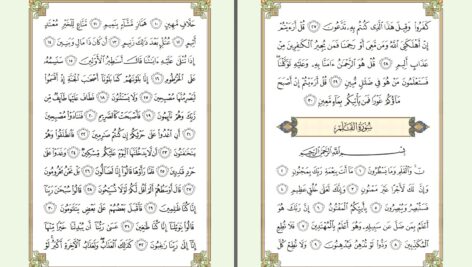 كَفَرُوا وَقِيلَ هَٰذَا الَّذِي كُنتُم بِهِ تَدَّعُونَ ٢٧ قُلْ أَرَأَيْتُمْ
إِنْ أَهْلَكَنِيَ اللَّهُ وَمَن مَّعِيَ أَوْ رَحِمَنَا فَمَن يُجِيرُ الْكَافِرِينَ مِنْ
عَذَابٍ أَلِيمٍ ٢٨ قُلْ هُوَ الرَّحْمَٰنُ آمَنَّا بِهِ وَعَلَيْهِ تَوَكَّلْنَا
فَسَتَعْلَمُونَ مَنْ هُوَ فِي ضَلَالٍ مُّبِينٍ ٢٩ قُلْ أَرَأَيْتُمْ إِنْ أَصْبَحَ
مَاؤُكُمْ غَوْرًا فَمَن يَأْتِيكُم بِمَاءٍ مَّعِينٍ ٣٠
سُورَةُ الْقَلَمِ
بِسْمِ اللَّهِ الرَّحْمَٰنِ الرَّحِيمِ
ن وَالْقَلَمِ وَمَا يَسْطُرُونَ ١ مَا أَنتَ بِنِعْمَةِ رَبِّكَ بِمَجْنُونٍ ٢
وَإِنَّ لَكَ لَأَجْرًا غَيْرَ مَمْنُونٍ ٣ وَإِنَّكَ لَعَلَىٰ خُلُقٍ عَظِيمٍ ٤
فَسَتُبْصِرُ وَيُبْصِرُونَ ٥ بِأَييِّكُمُ الْمَفْتُونُ ٦ إِنَّ رَبَّكَ هُوَ
أَعْلَمُ بِمَن ضَلَّ عَن سَبِيلِهِ وَهُوَ أَعْلَمُ بِالْمُهْتَدِينَ ٧ فَلَا تُطِعِ
الْمُكَذِّبِينَ ٨ وَدُّوا لَوْ تُدْهِنُ فَيُدْهِنُونَ ٩ وَلَا تُطِعْ كُلَّ
حَلَّافٍ مَّهِينٍ ١٠ هَمَّازٍ مَّشَّاءٍ بِنَمِيمٍ ١١ مَّنَّاعٍ لِّلْخَيْرِ مُعْتَدٍ
أَثِيمٍ ١٢ عُتُلٍّ بَعْدَ ذَٰلِكَ زَنِيمٍ ١٣ أَن كَانَ ذَا مَالٍ وَبَنِينَ ١٤
إِذَا تُتْلَىٰ عَلَيْهِ آيَاتُنَا قَالَ أَسَاطِيرُ الْأَوَّلِينَ ١٥ سَنَسِمُهُ
عَلَى الْخُرْطُومِ ١٦ إِنَّا بَلَوْنَاهُمْ كَمَا بَلَوْنَا أَصْحَابَ الْجَنَّةِ إِذْ أَقْسَمُوا
لَيَصْرِمُنَّهَا مُصْبِحِينَ ١٧ وَلَا يَسْتَثْنُونَ ١٨ فَطَافَ عَلَيْهَا طَائِفٌ مِّن
رَّبِّكَ وَهُمْ نَائِمُونَ ١٩ فَأَصْبَحَتْ كَالصَّرِيمِ ٢٠ فَتَنَادَوْا مُصْبِحِينَ
٢١ أَنِ اغْدُوا عَلَىٰ حَرْثِكُمْ إِن كُنتُمْ صَارِمِينَ ٢٢ فَانطَلَقُوا وَهُمْ
يَتَخَافَتُونَ ٢٣ أَن لَّا يَدْخُلَنَّهَا الْيَوْمَ عَلَيْكُم مِّسْكِينٌ ٢٤ وَغَدَوْا عَلَىٰ
حَرْدٍ قَادِرِينَ ٢٥ فَلَمَّا رَأَوْهَا قَالُوا إِنَّا لَضَالُّونَ ٢٦ بَلْ نَحْنُ مَحْرُومُونَ
٢٧ قَالَ أَوْسَطُهُمْ أَلَمْ أَقُل لَّكُمْ لَوْلَا تُسَبِّحُونَ ٢٨ قَالُوا سُبْحَانَ رَبِّنَا
إِنَّا كُنَّا ظَالِمِينَ ٢٩ فَأَقْبَلَ بَعْضُهُمْ عَلَىٰ بَعْضٍ يَتَلَاوَمُونَ ٣٠
قَالُوا يَا وَيْلَنَا إِنَّا كُنَّا طَاغِينَ ٣١ عَسَىٰ رَبُّنَا أَن يُبْدِلَنَا خَيْرًا مِّنْهَا
إِنَّا إِلَىٰ رَبِّنَا رَاغِبُونَ ٣٢ كَذَٰلِكَ الْعَذَابُ وَلَعَذَابُ الْآخِرَةِ أَكْبَرُ لَوْ